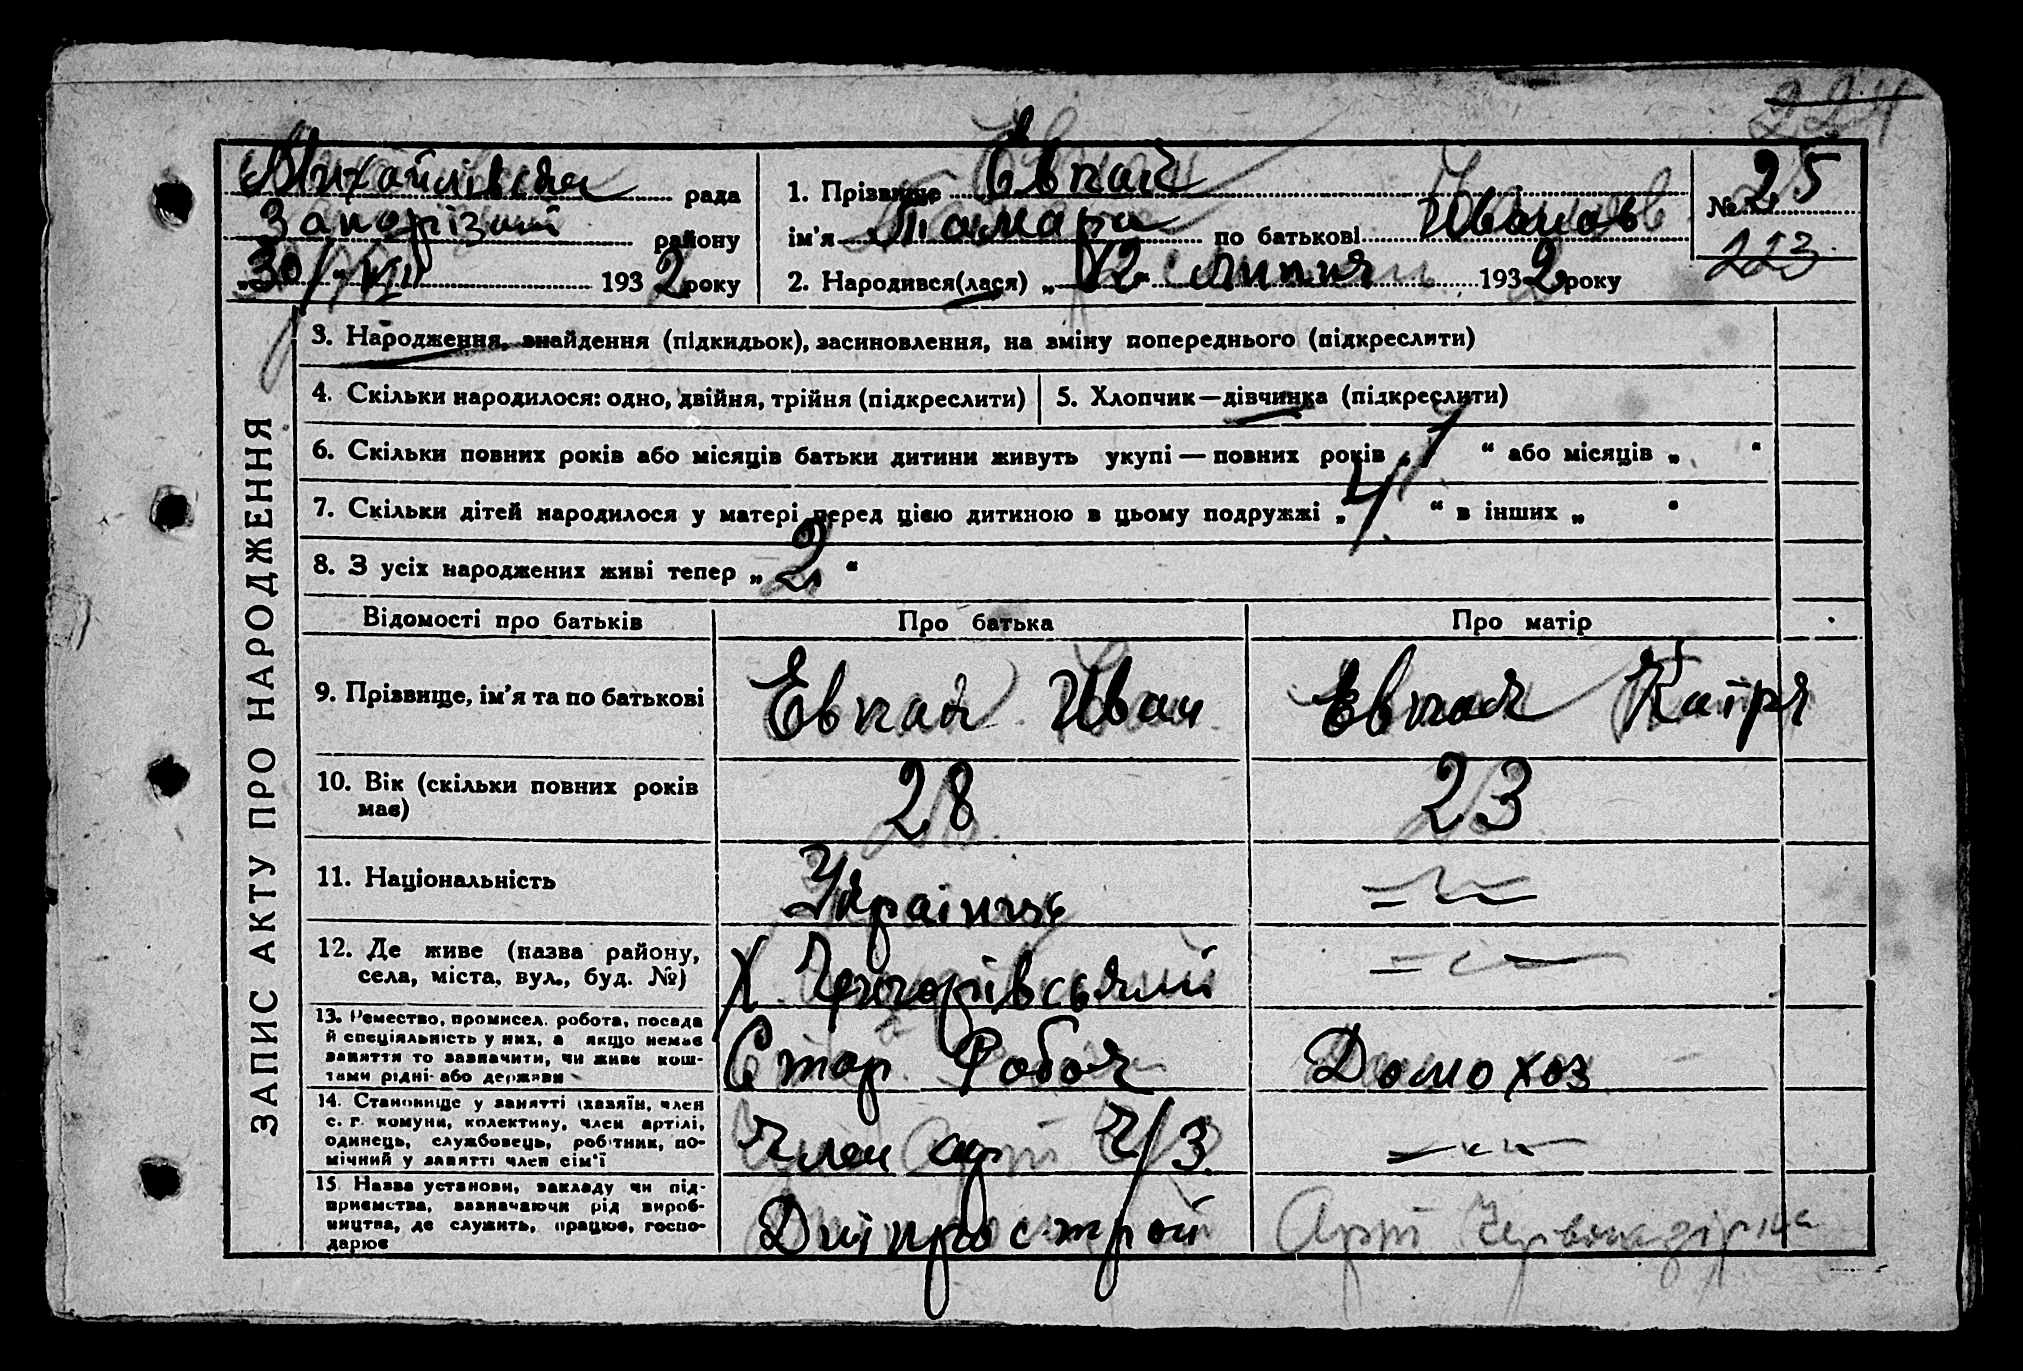 224
Михайлівська рада
Запорізький району
„30“ VII 1932 року
1. Прізвище Євпай
ім'я Тамара по батькові Иванов
2. Народився(лася) „12“ липня 1932 року
№ 25
223
ЗАПИС АКТУ ПРО НАРОДЖЕННЯ
3. Народження, знайдення (підкидьок), засиновлення, на зміну попереднього (підкреслити)
4. Скільки народилося: одно, двійня, трійня (підкреслити)
5. Хлопчик—дівчинка (підкреслити)
6. Скільки повних років або місяців батьки дитини живуть укупі — повних років „7“ або місяців „ “
7. Скільки дітей народилося у матері перед цією дитиною в цьому подружжі „ “ в інших „ “
8. З усіх народжених живі тепер „2“
Відомості про батьків Про батька Про матір
9. Прізвище, ім'я та по батькові Евпай Иван Евпай Катря
10. Вік (скільки повних років має) 28 23
11. Національність Українце
12. Де живе (назва району, села, міста, вул., буд. №) Х
13. Ремество, промисел, робота, посада й спеціяльність у них, а якщо немає заняття то зазначити, чи живе коштами рідні або держави Робоч Домохоз
14. Становище у занятті (хазяїн, член с. г. комуни, колективу, член артілі, одинець, службовець, робітник, помічний у занятті член сім'ї Член Ч/З
15. Назва установи, закладу чи підприємства, зазначаючи рід виробництва, де служить, працює, господарює Дніпрострой Арті